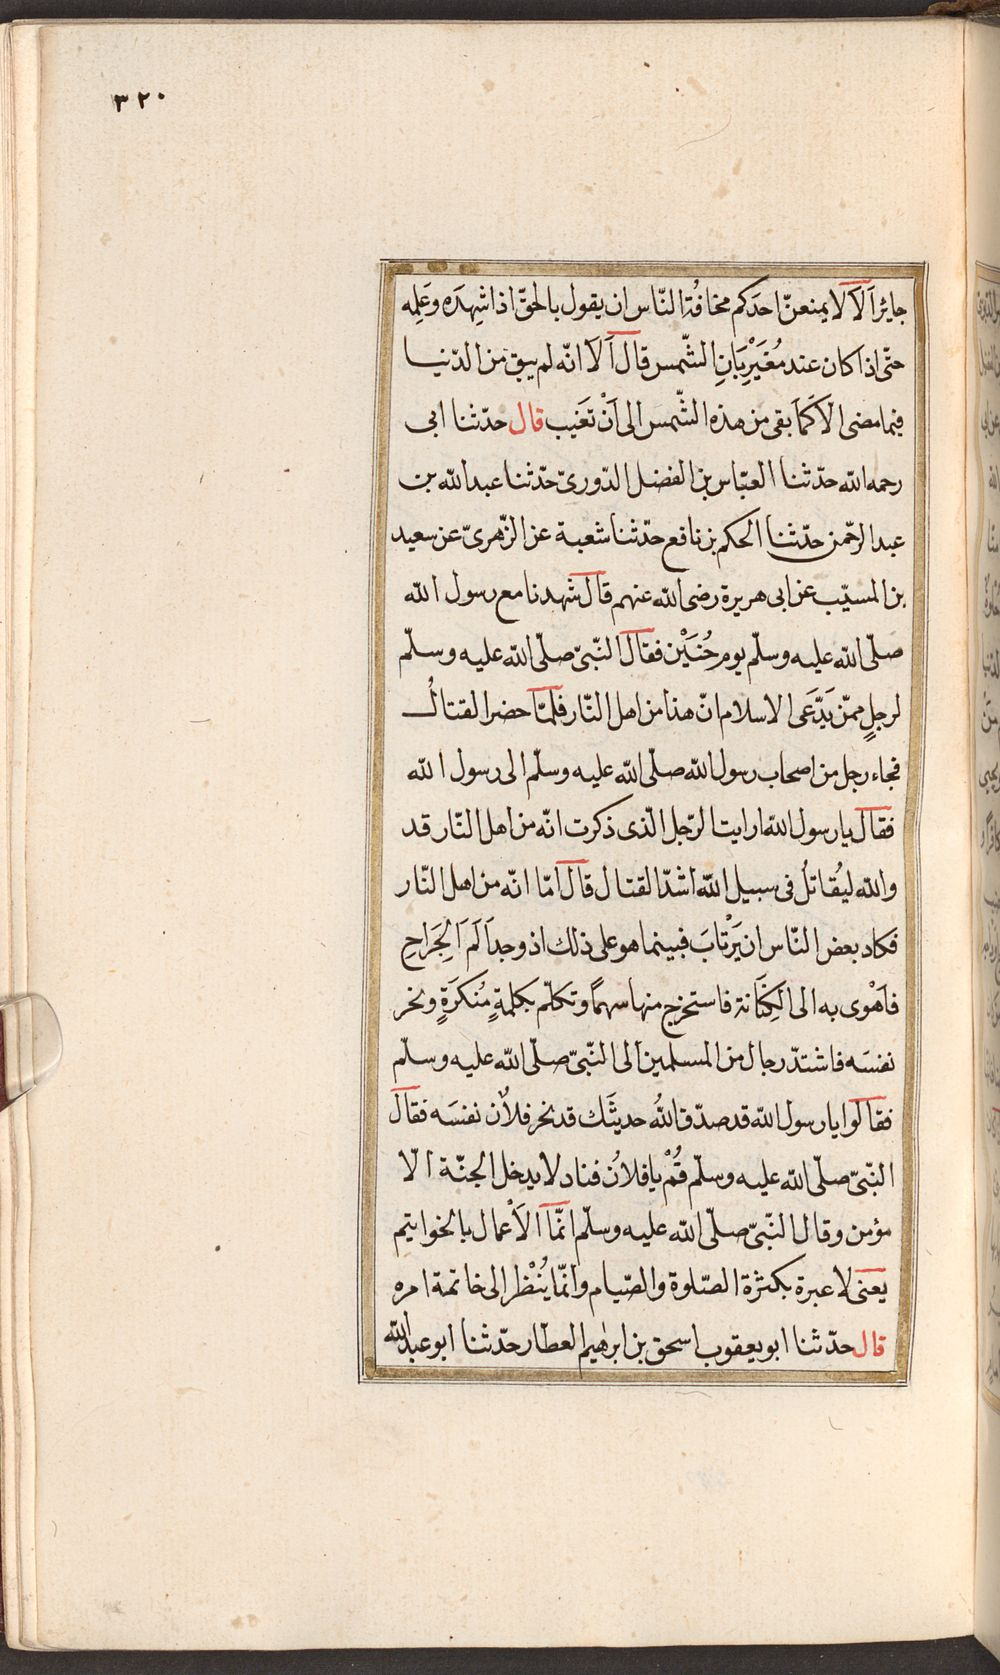 ٣٢٠
جايرًا ألَا لا يمنعنّ احدكم مخافةُ النّاس ان يقول بالحقّ اذا شهِدَه وعَلِمه
حتّى اذا كان عند مُغَيْرِبَانِ الشّمس قال ألا انّه لم يبق من الدّنيا
فيما مضى الّا كَمَا بقى من هذه الشّمس الى اَنْ تغيب قال حدّثنا ابى
رحمه الله حدّثنا العبّاس بن الفضل الدّورىّ حدّثنا عبد الله بن
عبد الرّحمن حدّثنا الحكم بن نافع حدّثنا شعبة عن الزّهرىّ عن سعيد
بن المسيّب عن ابى هريرة رضى الله عنهم قال شهدنا مع رسول الله
صلّى الله عليه وسلّم يوم حُنَيْن فقال النّبىّ صلّى الله عليه وسلّم
لرجلٍ ممّن يَدَّعَى الاسلام انّ هذا من اهل النّار فلمّا حضر القتالُ
فجاء رجل من اصحاب رسول الله صلّى الله عليه وسلّم الى رسول الله
فقال يا رسول الله ارايت الرّجل الّذى ذكرت انّه من اهل النّار قد
والله ليُقاتلُ فى سبيل الله اشدّ القتال قال امّا انّه من اهل النّار
فكاد بعض النّاس ان يَرْتابَ فبينما هو على ذلك اذ وجد اَلَمَ الْجَراحِ
فاَهْوى به الى الكِنَانة فاستخرج منها سهمًا وتكلّم بكلمةٍ مُنكَرَةٍ ونحر
نفسَه فاشتدّ رجال من المسلمين الى النّبىّ صلّى الله عليه وسلّم
فقالوا يا رسول الله قد صدّق اللهُ حديثَك قد نحر فلانٌ نفسَه فقال
النّبىّ صلّى الله عليه وسلّم قُمْ يا فلانُ فناد لا يدخل الجنّة الّا
مؤمن وقال النّبىّ صلّى الله عليه وسلّم انّما الاَعْمال بالخواتيم
يعنى لا عبرة بكثرة الصّلوة والصّيام وانّما يُنْظر الى خاتمة امره
قال حدّثنا ابو يعقوب اسحق بن ابرهيم العطّار حدّثنا ابو عبد الله